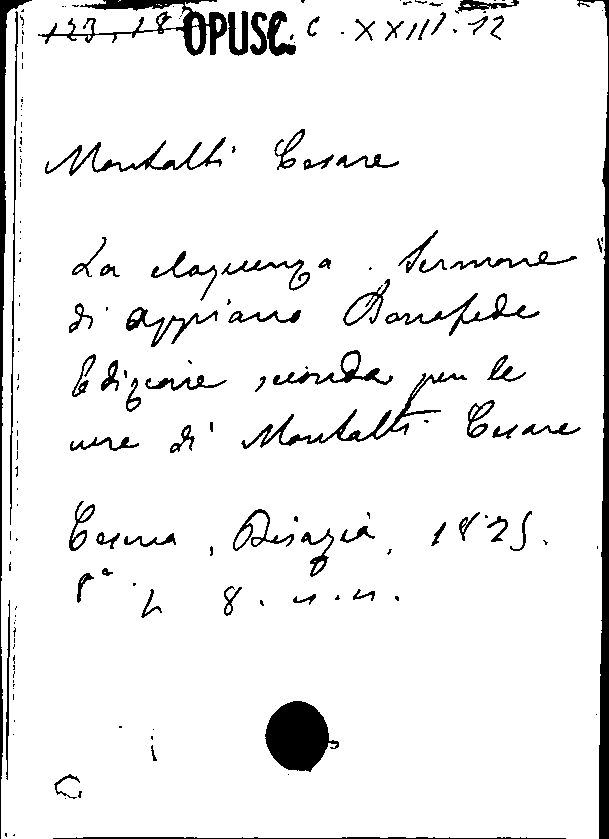 OPUSC. C. XXIII. 12
Montalti Cesare
La eloquenza. Sermone
di Appiano Bonafede
Edizione seconda per le
cure di Montalti Cesare
Cesena, Bisazia, 1825.
8° 8. n.n.